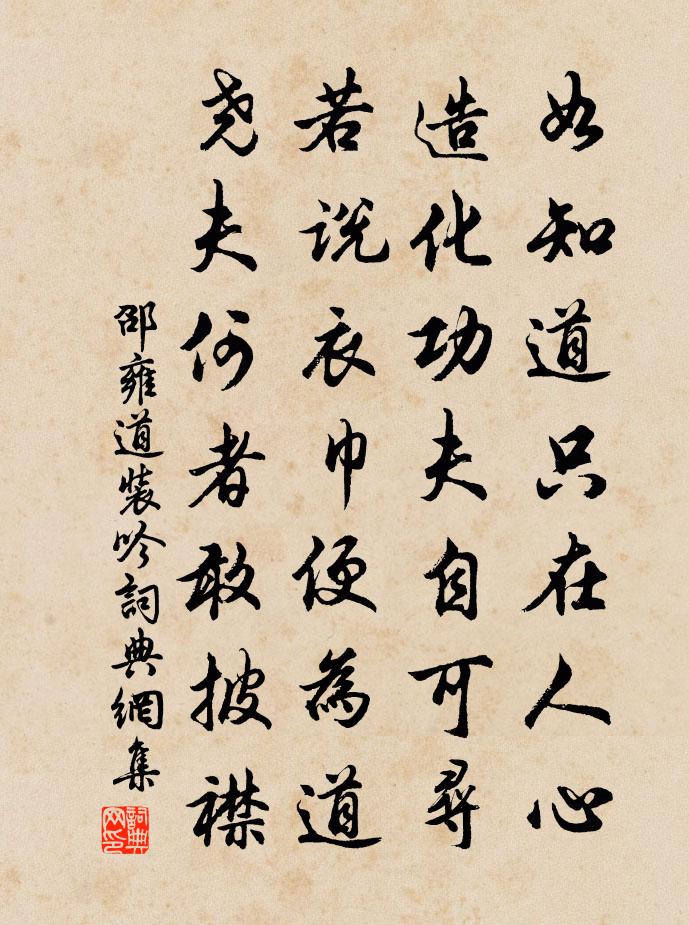 如知道只在人心
造化功夫自可尋
若説衣巾便為道
尧夫何者敢披襟
邵雍道裝吟詞典網集
詞典网印